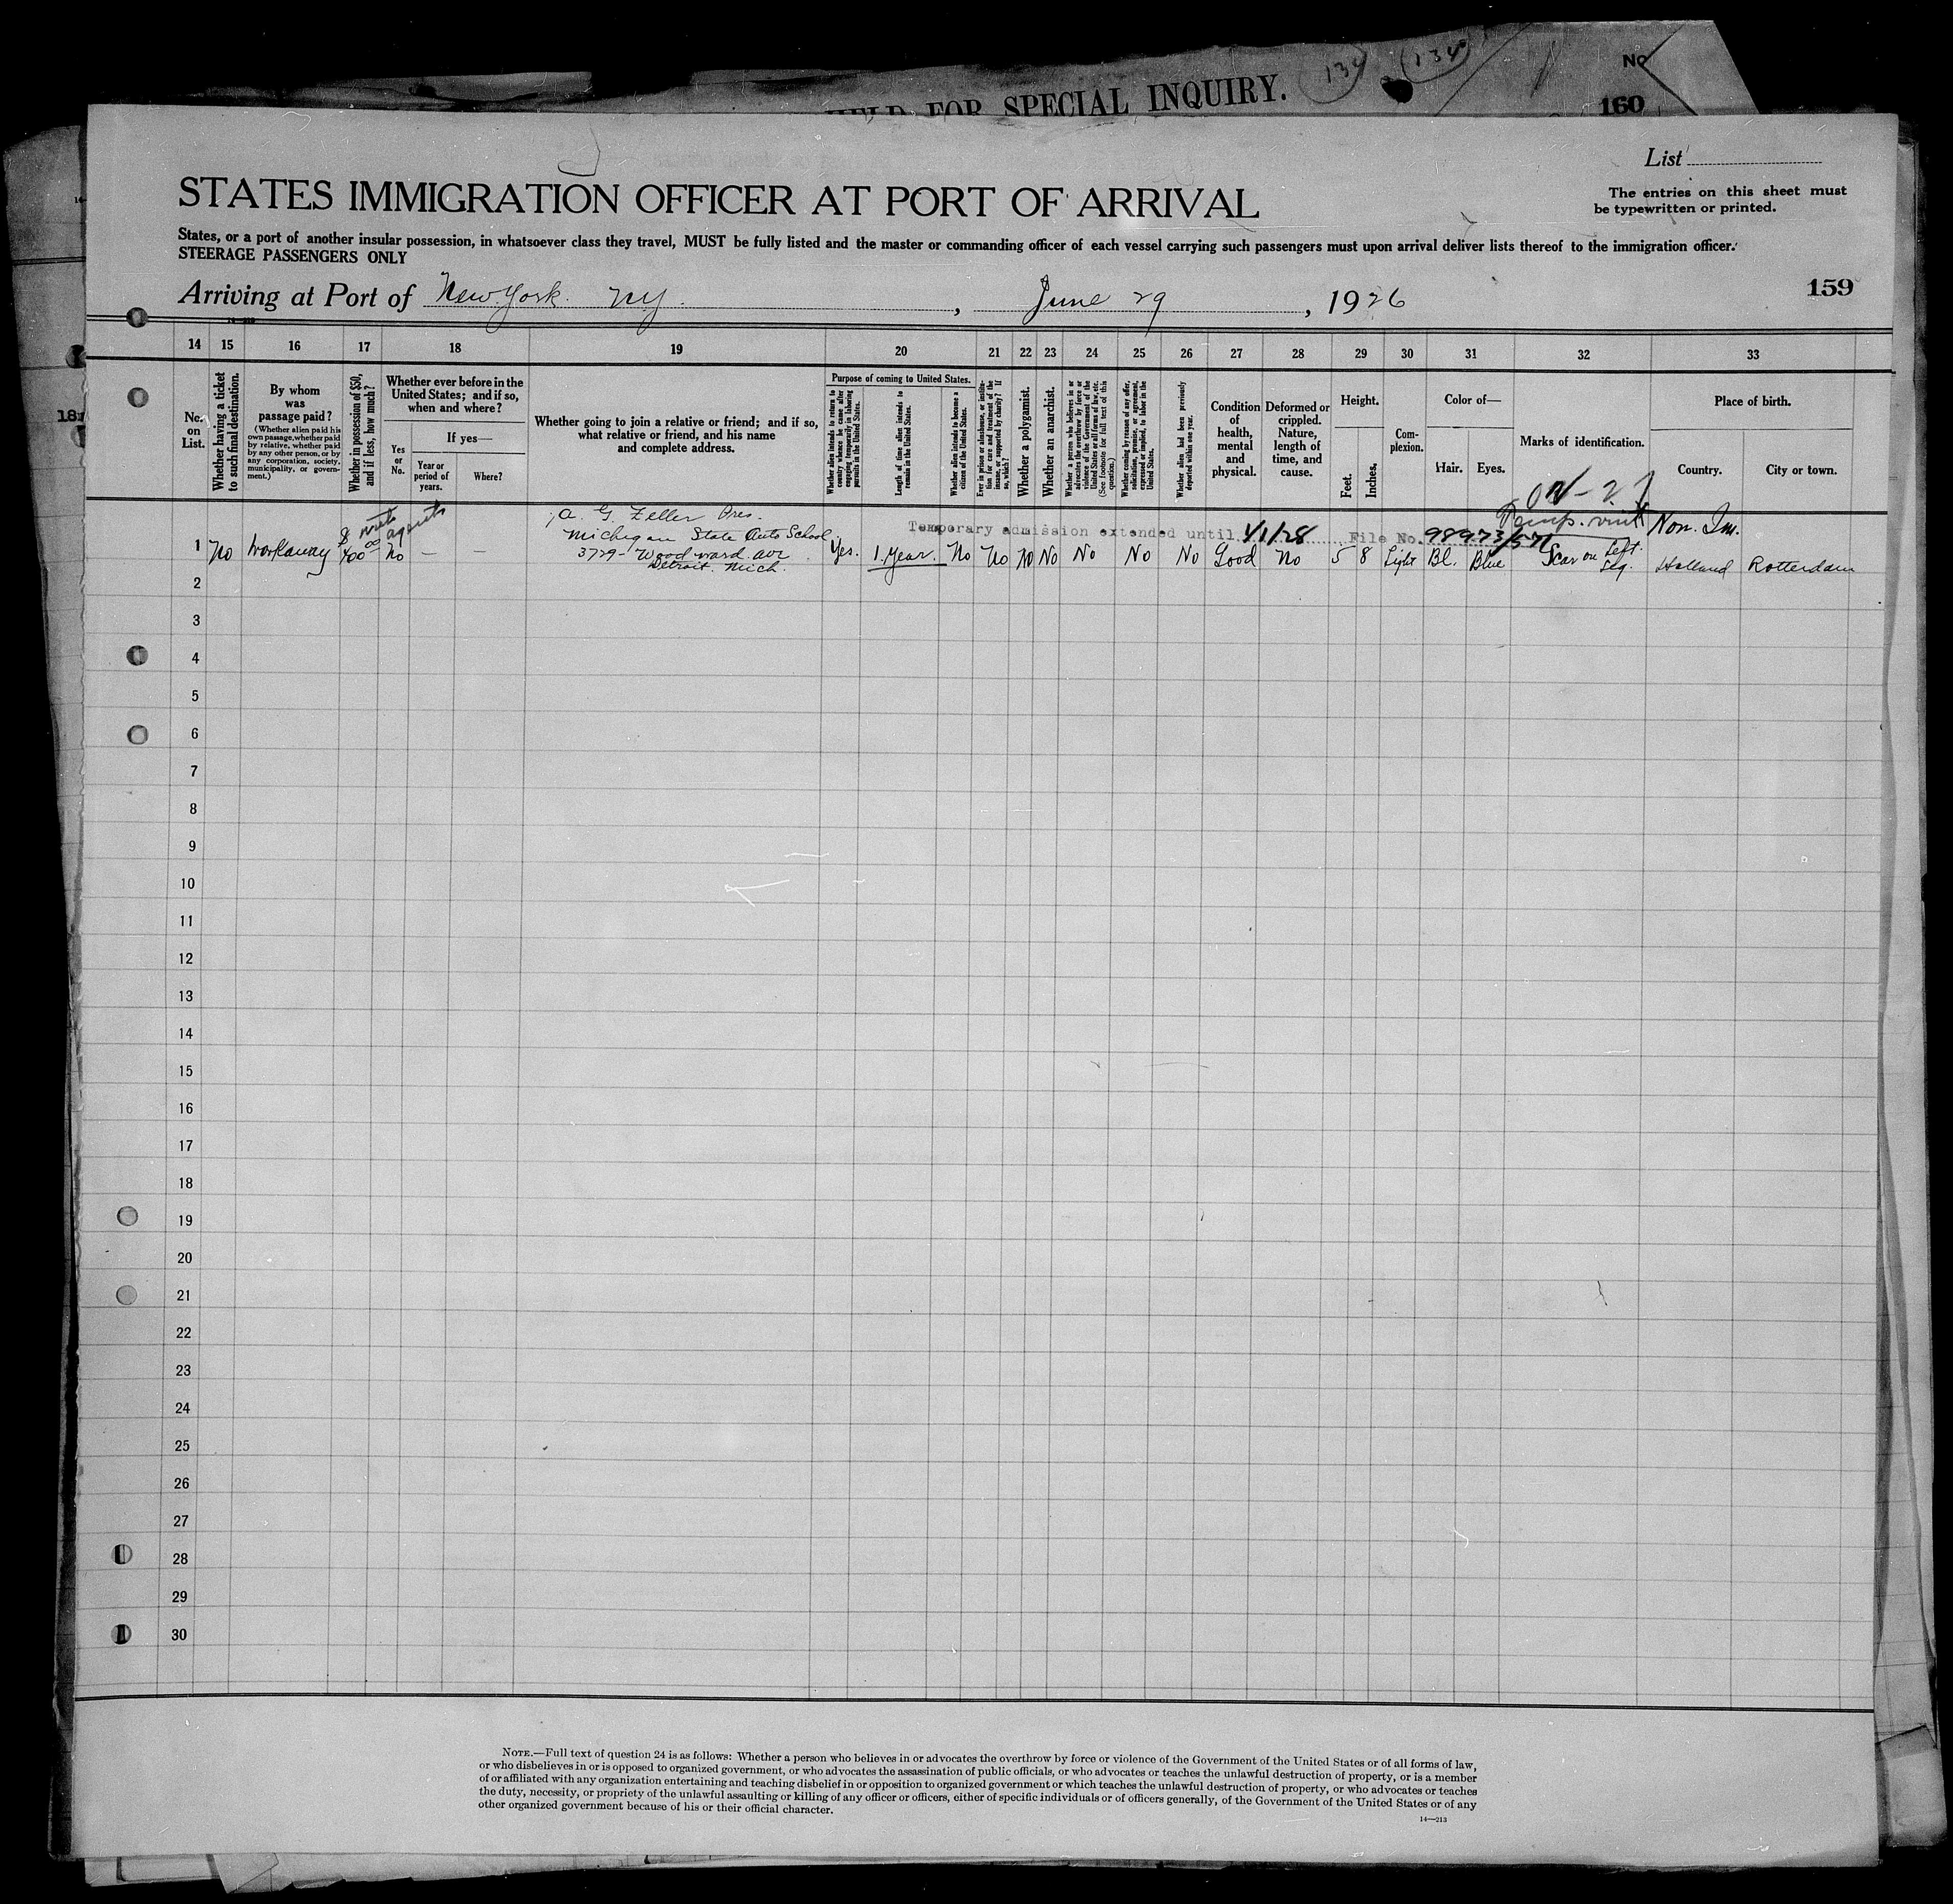 HELD FOR SPECIAL INQUIRY.
134
134
No
160
List
STATES IMMIGRATION OFFICER AT PORT OF ARRIVAL
The entries on this sheet must
be typewritten or printed.
States, or a port of another insular possession, in whatsoever class they travel, MUST be fully listed and the master or commanding officer of each vessel carrying such passengers must upon arrival deliver lists thereof to the immigration officer.
STEERAGE PASSENGERS ONLY
Arriving at Port of New York NY. , June 29 , 1926
159
14 15 16 17 18 19 20 21 22 23 24 25 26 27 28 29 30 31 32 33
No. on List.
Whether having a ticket to such final destination.
By whom was passage paid?
(Whether alien paid his own passage, whether paid by relative, whether paid by any other person, or by any corporation, society, municipality, or government.)
Whether in possession of $50, and if less, how much?
Whether ever before in the United States; and if so, when and where?
Yes or No.
If yes—
Year or period of years.
Where?
Whether going to join a relative or friend; and if so, what relative or friend, and his name and complete address.
Purpose of coming to United States.
Whether alien intends to return to country whence he came after engaging temporarily in laboring pursuits in the United States.
Length of time alien intends to remain in the United States.
Whether alien intends to become a citizen of the United States.
Ever in prison or almshouse, or institution for care and treatment of the insane, or supported by charity? If so, which?
Whether a polygamist.
Whether an anarchist.
Whether a person who believes in or advocates the overthrow by force or violence of the Government of the United States or all forms of law, etc. (See footnote for full text of this question.)
Whether coming by reason of any offer, solicitation, promise, or agreement, expressed or implied, to labor in the United States.
Whether alien had been previously deported within one year.
Condition of health, mental and physical.
Deformed or crippled. Nature, length of time, and cause.
Height.
Feet.
Inches.
Complexion.
Color of—
Hair.
Eyes.
Marks of identification.
Place of birth.
Country.
City or town.
A. G. Zeller Pres.
Michigan State Auto School
3729 - Woodward ave
Detroit Mich.
Temporary admission extended until 1/1/28 File No. 98973/571
Non. Im.
1 No workaway 400 No — — Yes. 1 Year. No No No No No No No Good No 5 8 Light Bl. Blue Scar on Left Leg. Holland Rotterdam
2
3
4
5
6
7
8
9
10
11
12
13
14
15
16
17
18
19
20
21
22
23
24
25
26
27
28
29
30
NOTE.—Full text of question 24 is as follows: Whether a person who believes in or advocates the overthrow by force or violence of the Government of the United States or of all forms of law,
or who disbelieves in or is opposed to organized government, or who advocates the assassination of public officials, or who advocates or teaches the unlawful destruction of property, or is a member
of or affiliated with any organization entertaining and teaching disbelief in or opposition to organized government or which teaches the unlawful destruction of property, or who advocates or teaches
the duty, necessity, or propriety of the unlawful assaulting or killing of any officer or officers, either of specific individuals or of officers generally, of the Government of the United States or of any
other organized government because of his or their official character.
14—213